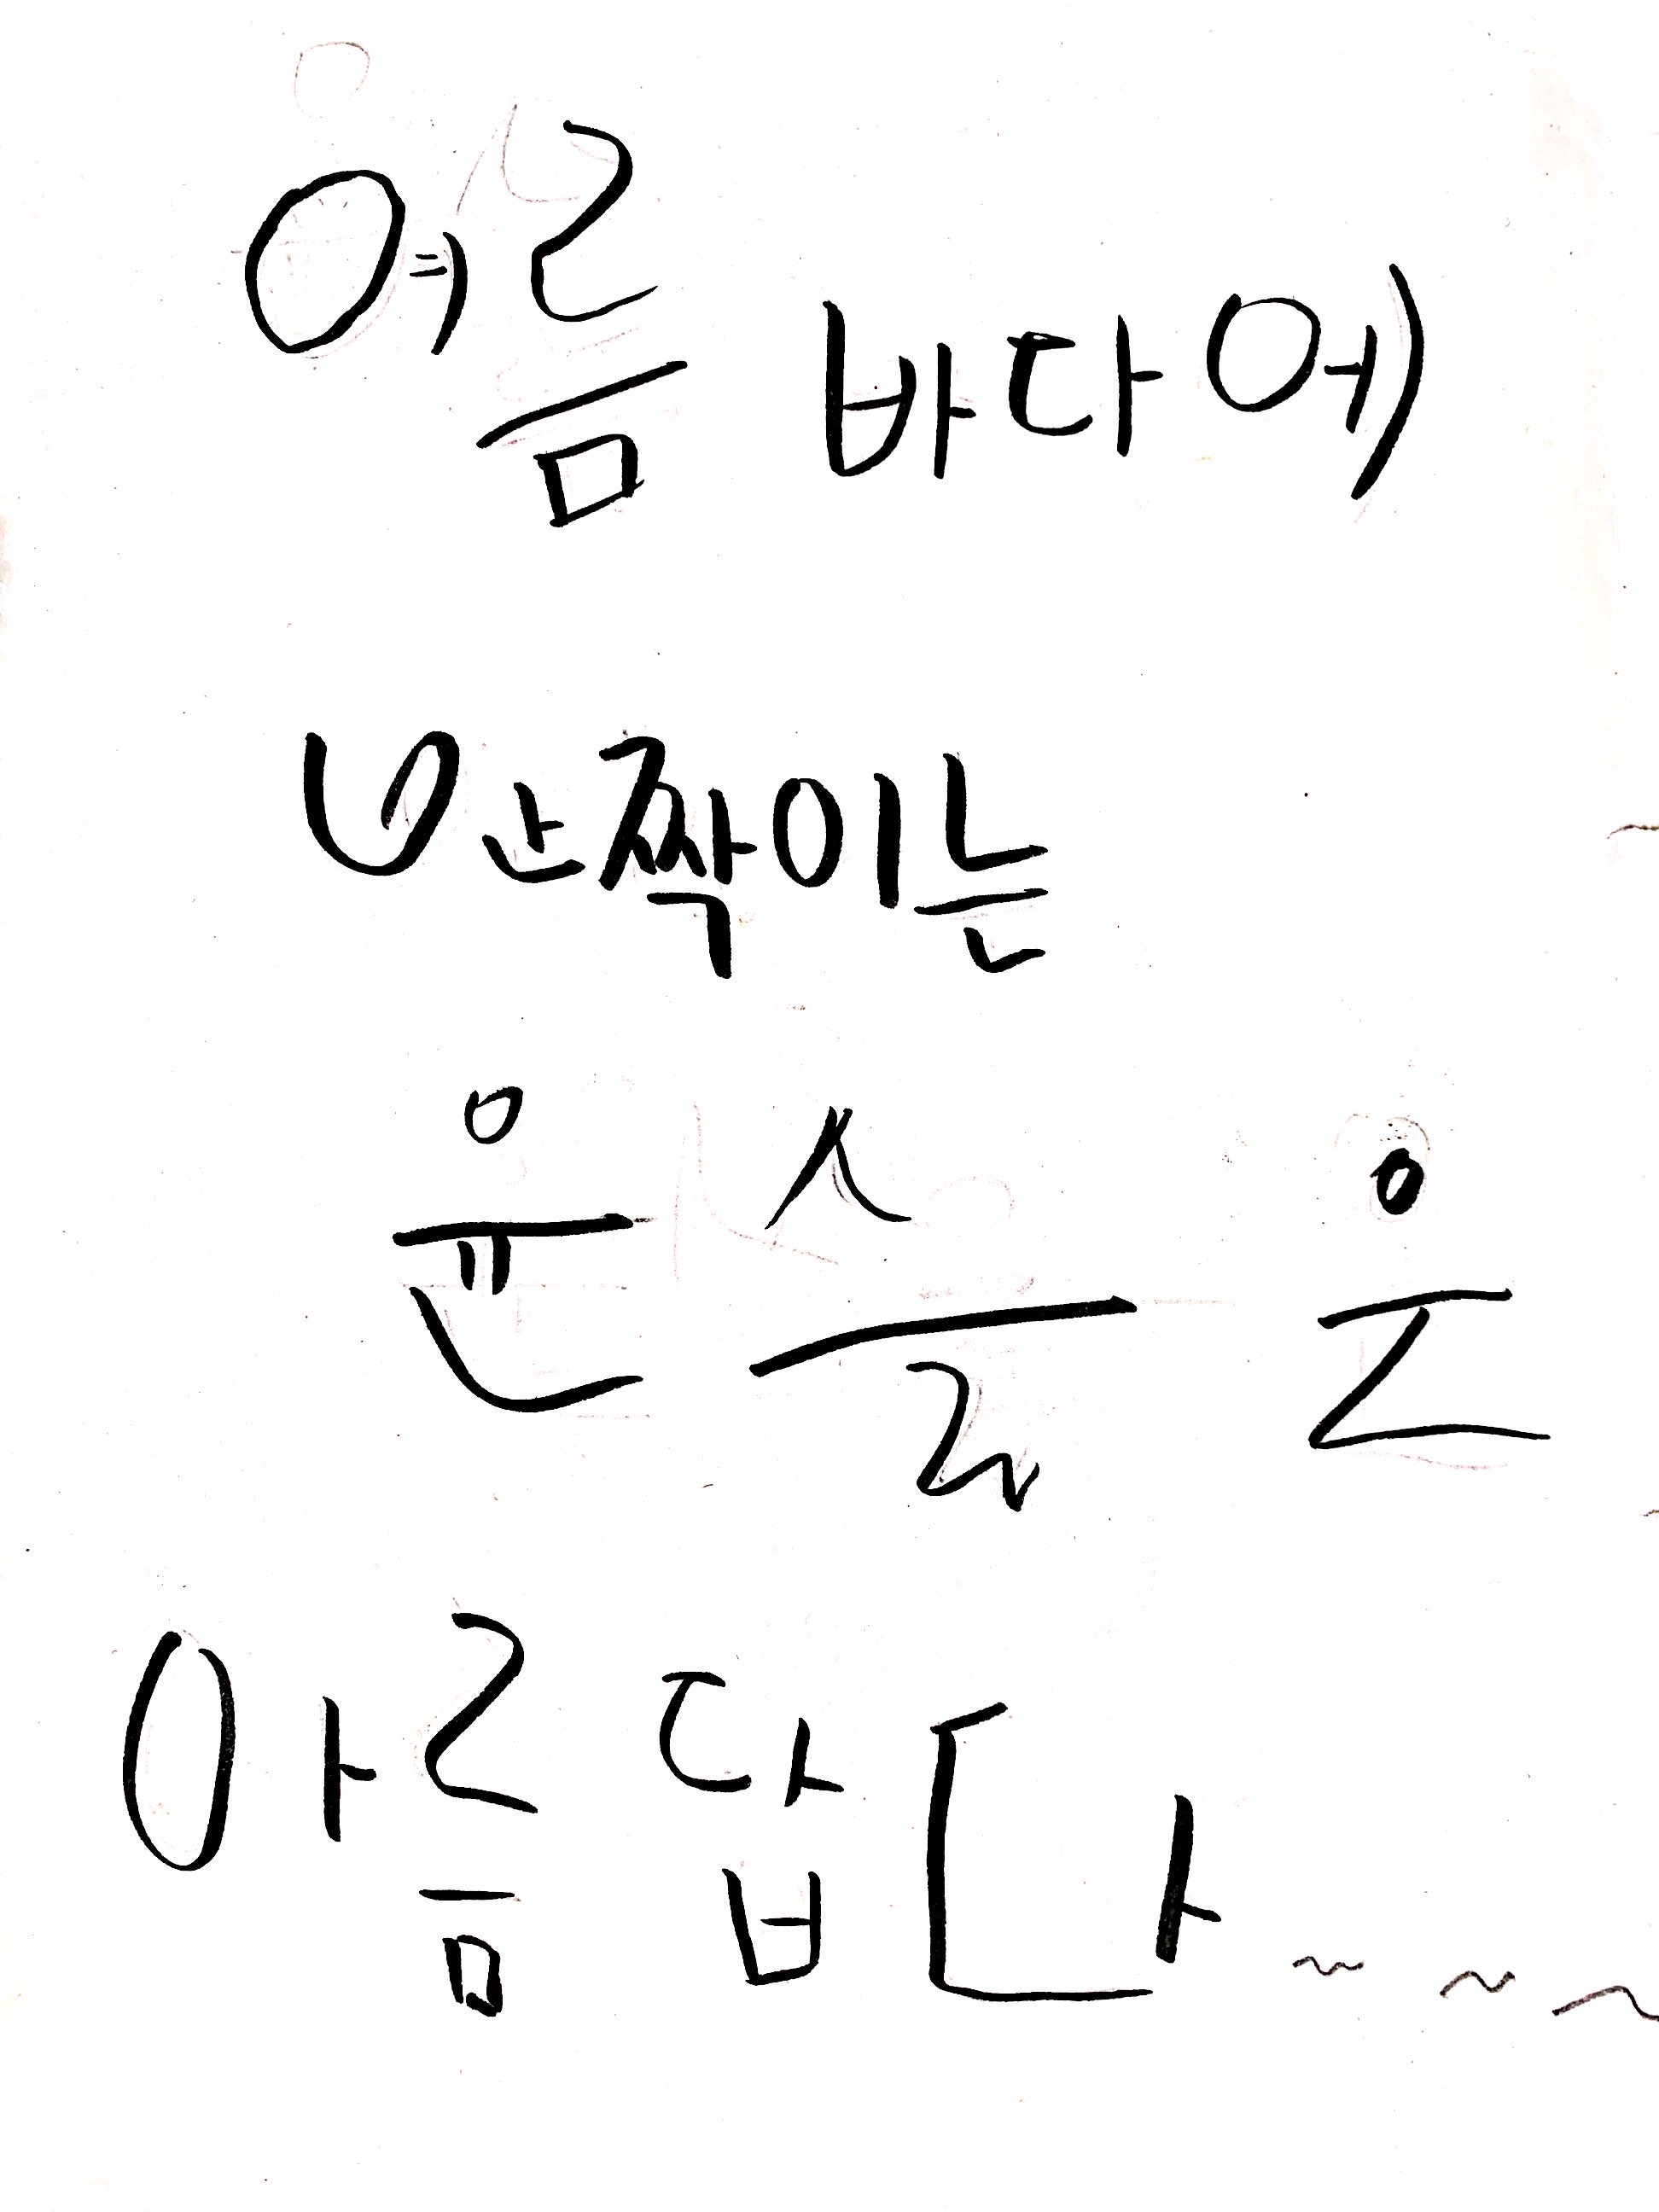 여름 바다에
반짝이는
윤슬은
아름답다~~~